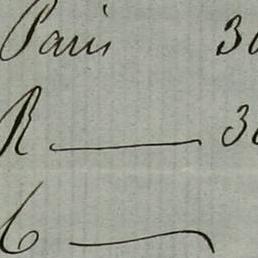 Paris 30
R —— 30